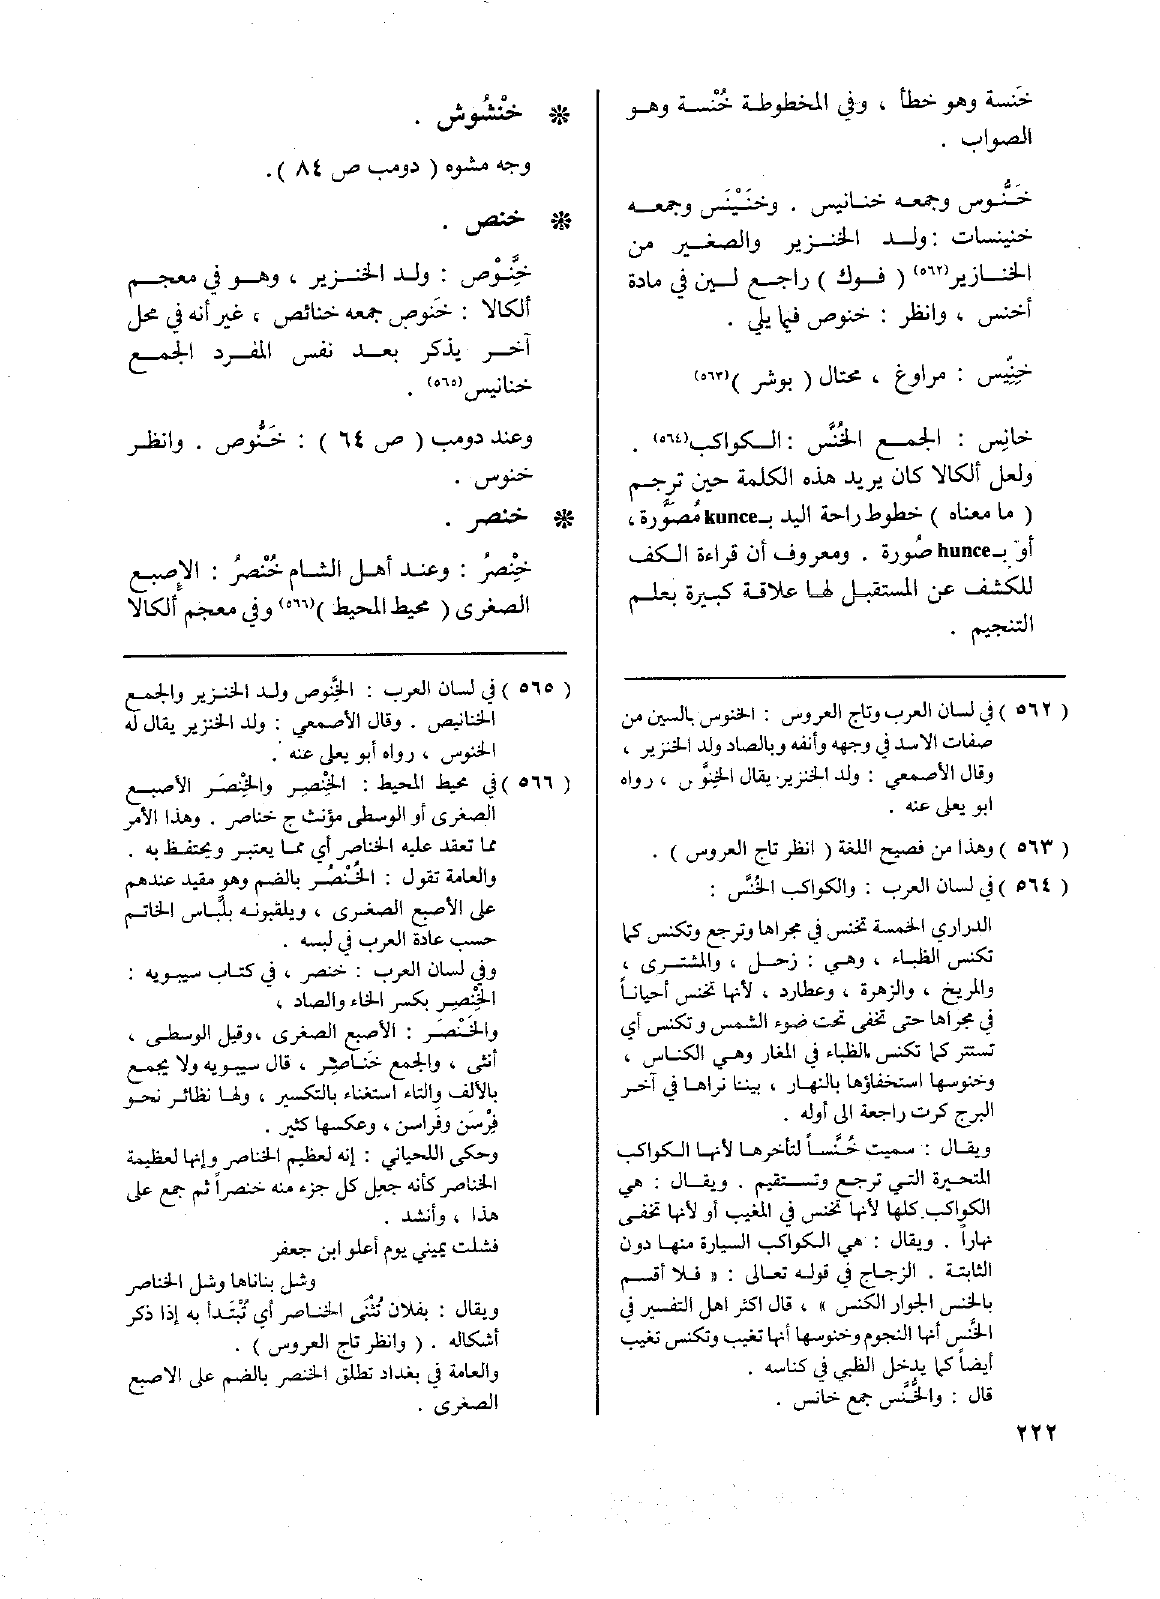 خَنسة وهو خطأ ، وفي المخطوطة خُنْسة وهو
الصواب .
خَنُّوس وجمعه خنانيس . وخَنَيْنَس وجمعه
خنينسات : ولد الخنزير والصغير من
الخنازير(٥٦٢) ( فوك ) راجع لين في مادة
أخنس ، وانظر : خنوص فيما يلي .
خِنِّيس : مراوغ ، محتال ( بوشر )(٥٦٣)
خانِس : الجمع الخُنَّس : الكواكب(٥٦٤) .
ولعل ألكالا كان يريد هذه الكلمة حين ترجم
( ما معناه ) خطوط راحة اليد بـ kunce مُصَوَّرة ،
أو بـ hunce صُورة . ومعروف أن قراءة الكف
للكشف عن المستقبل لها علاقة كبيرة بعلم
التنجيم .
( ٥٦٢ ) في لسان العرب وتاج العروس : الخنوس بالسين من
صفات الاسد في وجهه وأنفه وبالصاد ولد الخنزير ،
وقال الأصمعي : ولد الخنزير يقال الخنَّوس ، رواه
ابو يعلى عنه .
( ٥٦٣ ) وهذا من فصيح اللغة ( انظر تاج العروس ) .
( ٥٦٤ ) في لسان العرب : والكواكب الخُنَّس :
الدراري الخمسة تخنس في مجراها وترجع وتكنس كما
تكنس الظباء ، وهي : زحل ، والمشترى ،
والمريخ ، والزهرة ، وعطارد ، لأنها تخنس أحياناً
في مجراها حتى تخفى تحت ضوء الشمس وتكنس أي
تستتر كما تكنس الظباء في المغار وهي الكناس ،
وخنوسها استخفاؤها بالنهار ، بينا نراها في آخر
البرج كرت راجعة الى أوله .
ويقال : سميت خُنَّساً لتأخرها لأنها الكواكب
المتحيرة التي ترجع وتستقيم . ويقال : هي
الكواكب كلها لأنها تخنس في المغيب أو لأنها تخفى
نهاراً . ويقال : هي الكواكب السيارة منها دون
الثابتة . الزجاج في قوله تعالى : « فلا أقسم
بالخنس الجوار الكنس » ، قال اكثر اهل التفسير في
الخُنَّس أنها النجوم وخنوسها أنها تغيب وتكنس تغيب
أيضاً كما يدخل الظبي في كناسه .
قال : والخُنَّس جمع خانس .
٢٢٢
❊ خنْشُوش .
وجه مشوه ( دومب ص ٨٤ ).
❊ خنص .
خِنَّوْص : ولد الخنزير ، وهو في معجم
ألكالا : خَنوص جمعه خنائص ، غير أنه في محل
آخر يذكر بعد نفس المفرد الجمع
خنانيس(٥٦٥) .
وعند دومب ( ص ٦٤ ) : خَنُّوص . وانظر
خنوس .
❊ خنصر .
خِنْصِرُ : وعند أهل الشام خُنْصرُ : الإصبع
الصغرى ( محيط المحيط )(٥٦٦) وفي معجم ألكالا
( ٥٦٥ ) في لسان العرب : الخِنَّوص ولد الخنزير والجمع
الخنانيص . وقال الأصمعي : ولد الخنزير يقال له
الخنوس ، رواه أبو يعلى عنه .
( ٥٦٦ ) في محيط المحيط : الخِنْصِر والخِنْصَر الأصبع
الصغرى أو الوسطى مؤنث ج خناصر . وهذا الأمر
مما تعقد عليه الخناصر أي مما يعتبر ويحتفظ به .
والعامة تقول : الخُنْصُر بالضم وهو مقيد عندهم
على الأصبع الصغرى ، ويلقبونه بلَبَّاس الخاتم
حسب عادة العرب في لبسه .
وفي لسان العرب : خنصر ، في كتاب سيبويه :
الخِنْصِر بكسر الخاء والصاد ،
والخَنْصَر : الأصبع الصغرى ، وقيل الوسطى ،
أنثى ، والجمع خَناصِر ، قال سيبويه ولا يجمع
بالألف والتاء استغناء بالتكسير ، ولها نظائر نحو
فِرْسَن وفَراسن ، وعكسها كثير .
وحكى اللحياني : إنه لعظيم الخناصر وإنها لعظيمة
الخناصر كأنه جعل كل جزء منه خنصراً ثم جمع على
هذا ، وأنشد .
فشلت يميني يوم أعلو ابن جعفر
وشل بناناها وشل الخناصر
ويقال : بفلان تُثْنَى الخناصر أي تُبْتَدأ به إذا ذكر
أشكاله . ( وانظر تاج العروس ) .
والعامة في بغداد تطلق الخنصر بالضم على الاصبع
الصغرى .